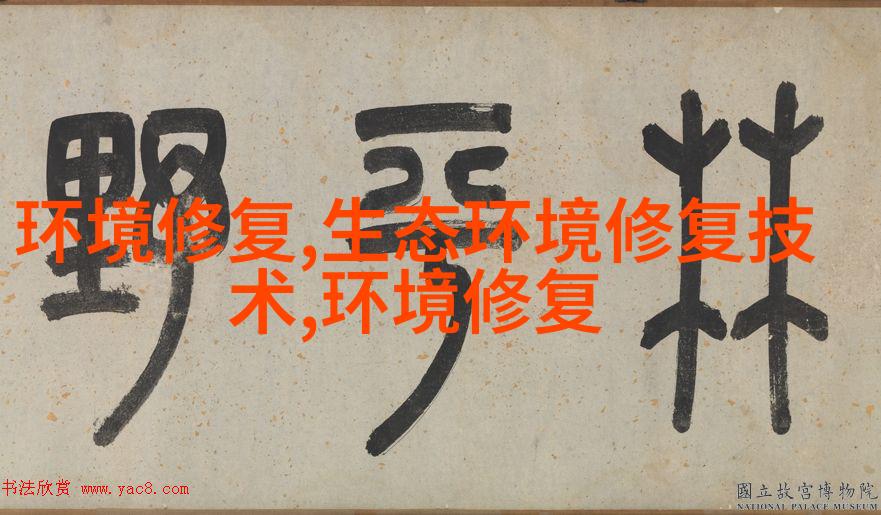 林平野
环境修复,生态环境修复技
术,环境修复
书法欣赏 www.yac8.com
國立故宮博物院
NATIONAL PALACE MUSEUM